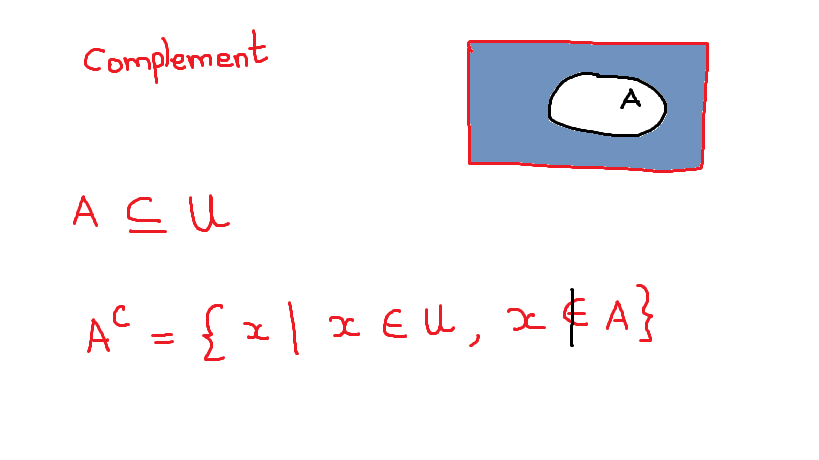 Complement
A
A ⊆ U
Aᶜ = { x | x ∈ U, x ∉ A}